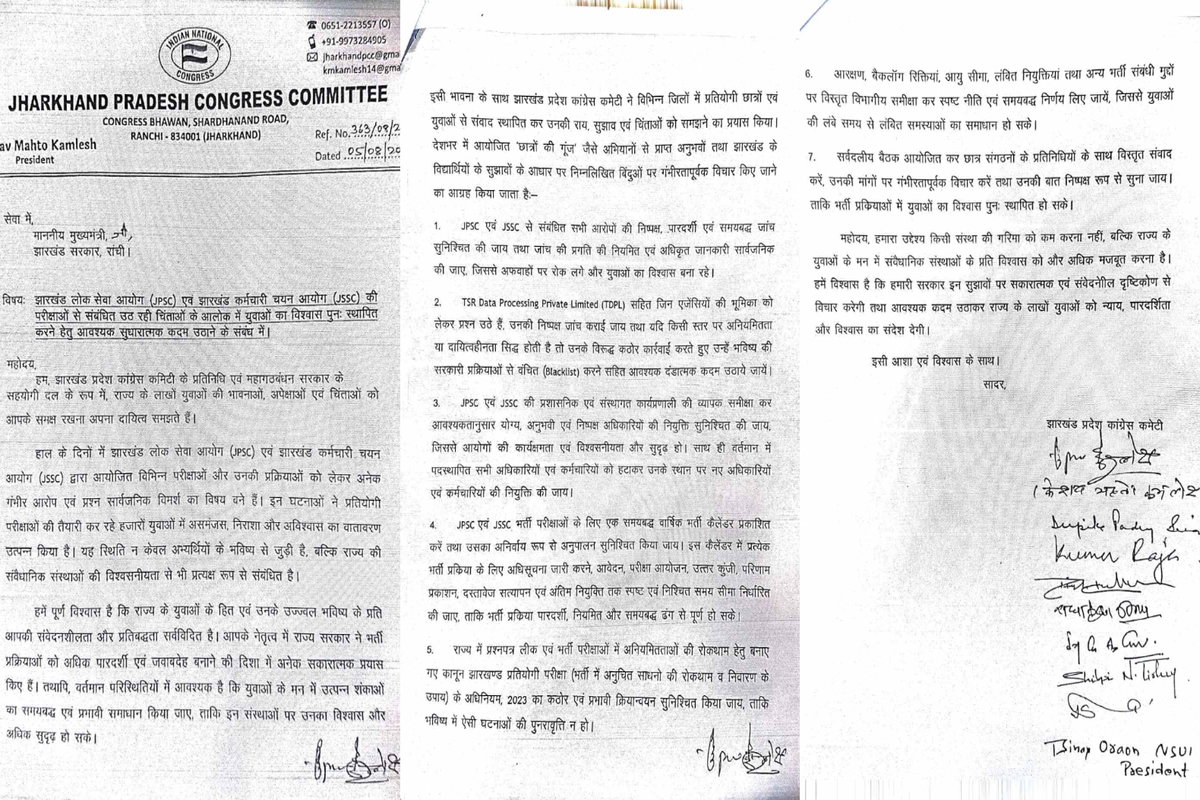 INDIAN NATIONAL
CONGRESS
0651-2213557 (O)
+91-9973284905
Jharkhandpcc@gma
kmkamlesh14@gma
JHARKHAND PRADESH CONGRESS COMMITTEE
CONGRESS BHAWAN, SHARDHANAND ROAD,
RANCHI - 834001 (JHARKHAND)
av Mahto Kamlesh
President
Ref. No. 363/08/2
Dated 05/08/20
सेवा में,
माननीय मुख्यमंत्री, जी,
झारखंड सरकार, रांची।
विषय: झारखंड लोक सेवा आयोग (JPSC) एवं झारखंड कर्मचारी चयन आयोग (JSSC) की
परीक्षाओं से संबंधित उठ रही चिंताओं के आलोक में युवाओं का विश्वास पुनः स्थापित
करने हेतु आवश्यक सुधारात्मक कदम उठाने के संबंध में।
महोदय,
हम, झारखंड प्रदेश कांग्रेस कमिटी के प्रतिनिधि एवं महागठबंधन सरकार के
सहयोगी दल के रूप में, राज्य के लाखों युवाओं की भावनाओं, अपेक्षाओं एवं चिंताओं को
आपके समक्ष रखना अपना दायित्व समझते हैं।
हाल के दिनों में झारखंड लोक सेवा आयोग (JPSC) एवं झारखंड कर्मचारी चयन
आयोग (JSSC) द्वारा आयोजित विभिन्न परीक्षाओं और उनकी प्रक्रियाओं को लेकर अनेक
गंभीर आरोप एवं प्रश्न सार्वजनिक विमर्श का विषय बने हैं। इन घटनाओं ने प्रतियोगी
परीक्षाओं की तैयारी कर रहे हजारों युवाओं में असमंजस, निराशा और अविश्वास का वातावरण
उत्पन्न किया है। यह स्थिति न केवल अभ्यर्थियों के भविष्य से जुड़ी है, बल्कि राज्य की
संवैधानिक संस्थाओं की विश्वसनीयता से भी प्रत्यक्ष रूप से संबंधित है।
हमें पूर्ण विश्वास है कि राज्य के युवाओं के हित एवं उनके उज्ज्वल भविष्य के प्रति
आपकी संवेदनशीलता और प्रतिबद्धता सर्वविदित है। आपके नेतृत्व में राज्य सरकार ने भर्ती
प्रक्रियाओं को अधिक पारदर्शी एवं जवाबदेह बनाने की दिशा में अनेक सकारात्मक प्रयास
किए हैं। तथापि, वर्तमान परिस्थितियों में आवश्यक है कि युवाओं के मन में उत्पन्न शंकाओं
का समयबद्ध एवं प्रभावी समाधान किया जाए, ताकि इन संस्थाओं पर उनका विश्वास और
अधिक सुदृढ़ हो सके।
इसी भावना के साथ झारखंड प्रदेश कांग्रेस कमिटी ने विभिन्न जिलों में प्रतियोगी छात्रों एवं
युवाओं से संवाद स्थापित कर उनकी राय, सुझाव एवं चिंताओं को समझने का प्रयास किया।
देशभर में आयोजित 'छात्रों की गूंज' जैसे अभियानों से प्राप्त अनुभवों तथा झारखंड के
विद्यार्थियों के सुझावों के आधार पर निम्नलिखित बिंदुओं पर गंभीरतापूर्वक विचार किए जाने
का आग्रह किया जाता है:–
1. JPSC एवं JSSC से संबंधित सभी आरोपों की निष्पक्ष, पारदर्शी एवं समयबद्ध जांच
सुनिश्चित की जाय तथा जांच की प्रगति की नियमित एवं अधिकृत जानकारी सार्वजनिक
की जाए, जिससे अफवाहों पर रोक लगे और युवाओं का विश्वास बना रहे।
2. TSR Data Processing Private Limited (TDPL) सहित जिन एजेंसियों की भूमिका को
लेकर प्रश्न उठे हैं, उनकी निष्पक्ष जांच कराई जाय तथा यदि किसी स्तर पर अनियमितता
या दायित्वहीनता सिद्ध होती है तो उनके विरुद्ध कठोर कार्रवाई करते हुए उन्हें भविष्य की
सरकारी प्रक्रियाओं से वंचित (Blacklist) करने सहित आवश्यक दंडात्मक कदम उठाये जायें।
3. JPSC एवं JSSC की प्रशासनिक एवं संस्थागत कार्यप्रणाली की व्यापक समीक्षा कर
आवश्यकतानुसार योग्य, अनुभवी एवं निष्पक्ष अधिकारियों की नियुक्ति सुनिश्चित की जाय,
जिससे आयोगों की कार्यक्षमता एवं विश्वसनीयता और सुदृढ़ हो। साथ ही वर्तमान में
पदस्थापित सभी अधिकारियों एवं कर्मचारियों को हटाकर उनके स्थान पर नए अधिकारियों
एवं कर्मचारियों की नियुक्ति की जाय।
4. JPSC एवं JSSC भर्ती परीक्षाओं के लिए एक समयबद्ध वार्षिक भर्ती कैलेंडर प्रकाशित
करें तथा उसका अनिवार्य रूप से अनुपालन सुनिश्चित किया जाय। इस कैलेंडर में प्रत्येक
भर्ती प्रकिया के लिए अधिसूचना जारी करने, आवेदन, परीक्षा आयोजन, उत्तर कुंजी, परिणाम
प्रकाशन, दस्तावेज सत्यापन एवं अंतिम नियुक्ति तक स्पष्ट एवं निश्चित समय सीमा निर्धारित
की जाए, ताकि भर्ती प्रकिया पारदर्शी, नियमित और समयबद्ध ढंग से पूर्ण हो सके।
5. राज्य में प्रश्नपत्र लीक एवं भर्ती परीक्षाओं में अनियमितताओं की रोकथाम हेतु बनाए
गए कानून झारखण्ड प्रतियोगी परीक्षा (भर्ती में अनुचित साधनो की रोकथाम व निवारण के
उपाय) के अधिनियम, 2023 का कठोर एवं प्रभावी क्रियान्वयन सुनिश्चित किया जाय, ताकि
भविष्य में ऐसी घटनाओं की पुनरावृत्ति न हो।
6. आरक्षण, बैकलॉग रिक्तियां, आयु सीमा, लंबित नियुक्तियां तथा अन्य भर्ती संबंधी मुद्दों
पर विस्तृत विभागीय समीक्षा कर स्पष्ट नीति एवं समयबद्ध निर्णय लिए जायें, जिससे युवाओं
की लंबे समय से लंबित समस्याओं का समाधान हो सके।
7. सर्वदलीय बैठक आयोजित कर छात्र संगठनों के प्रतिनिधियों के साथ विस्तृत संवाद
करें, उनकी मांगों पर गंभीरतापूर्वक विचार करें तथा उनकी बात निष्पक्ष रूप से सुना जाय।
ताकि भर्ती प्रकियाओं में युवाओं का विश्वास पुनः स्थापित हो सके।
महोदय, हमारा उद्देश्य किसी संस्था की गरिमा को कम करना नहीं, बल्कि राज्य के
युवाओं के मन में संवैधानिक संस्थाओं के प्रति विश्वास को और अधिक मजबूत करना है।
हमें विश्वास है कि हमारी सरकार इन सुझावों पर सकारात्मक एवं संवेदनशील दृष्टिकोण से
विचार करेगी तथा आवश्यक कदम उठाकर राज्य के लाखों युवाओं को न्याय, पारदर्शिता
और विश्वास का संदेश देगी।
इसी आशा एवं विश्वास के साथ।
सादर,
झारखंड प्रदेश कांग्रेस कमिटी
(केशव महतो कमलेश
Deepika Pandey Sing
Kumar Raja
Shilpi N. Tirkey
Binap Oraon NSUI
President